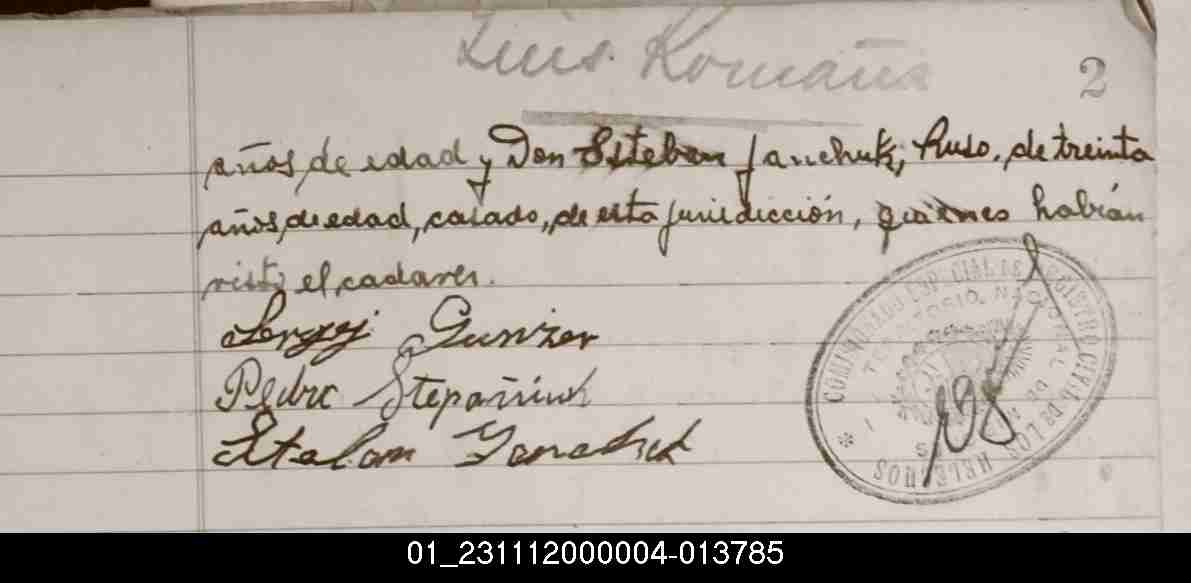 Luis Romaña
2
años de edad y Don Esteban Janchuk, Ruso, de treinta
años de edad, casado, de esta jurisdicción, quienes habían
visto el cadaver.
Sergej Gunizer
Pedro Stepañiuk
COMISARIADO ESPECIAL DE REGISTRO CIVIL DE LOS HELECHOS
TERRITORIO NACIONAL DE MISIONES
01_231112000004-013785